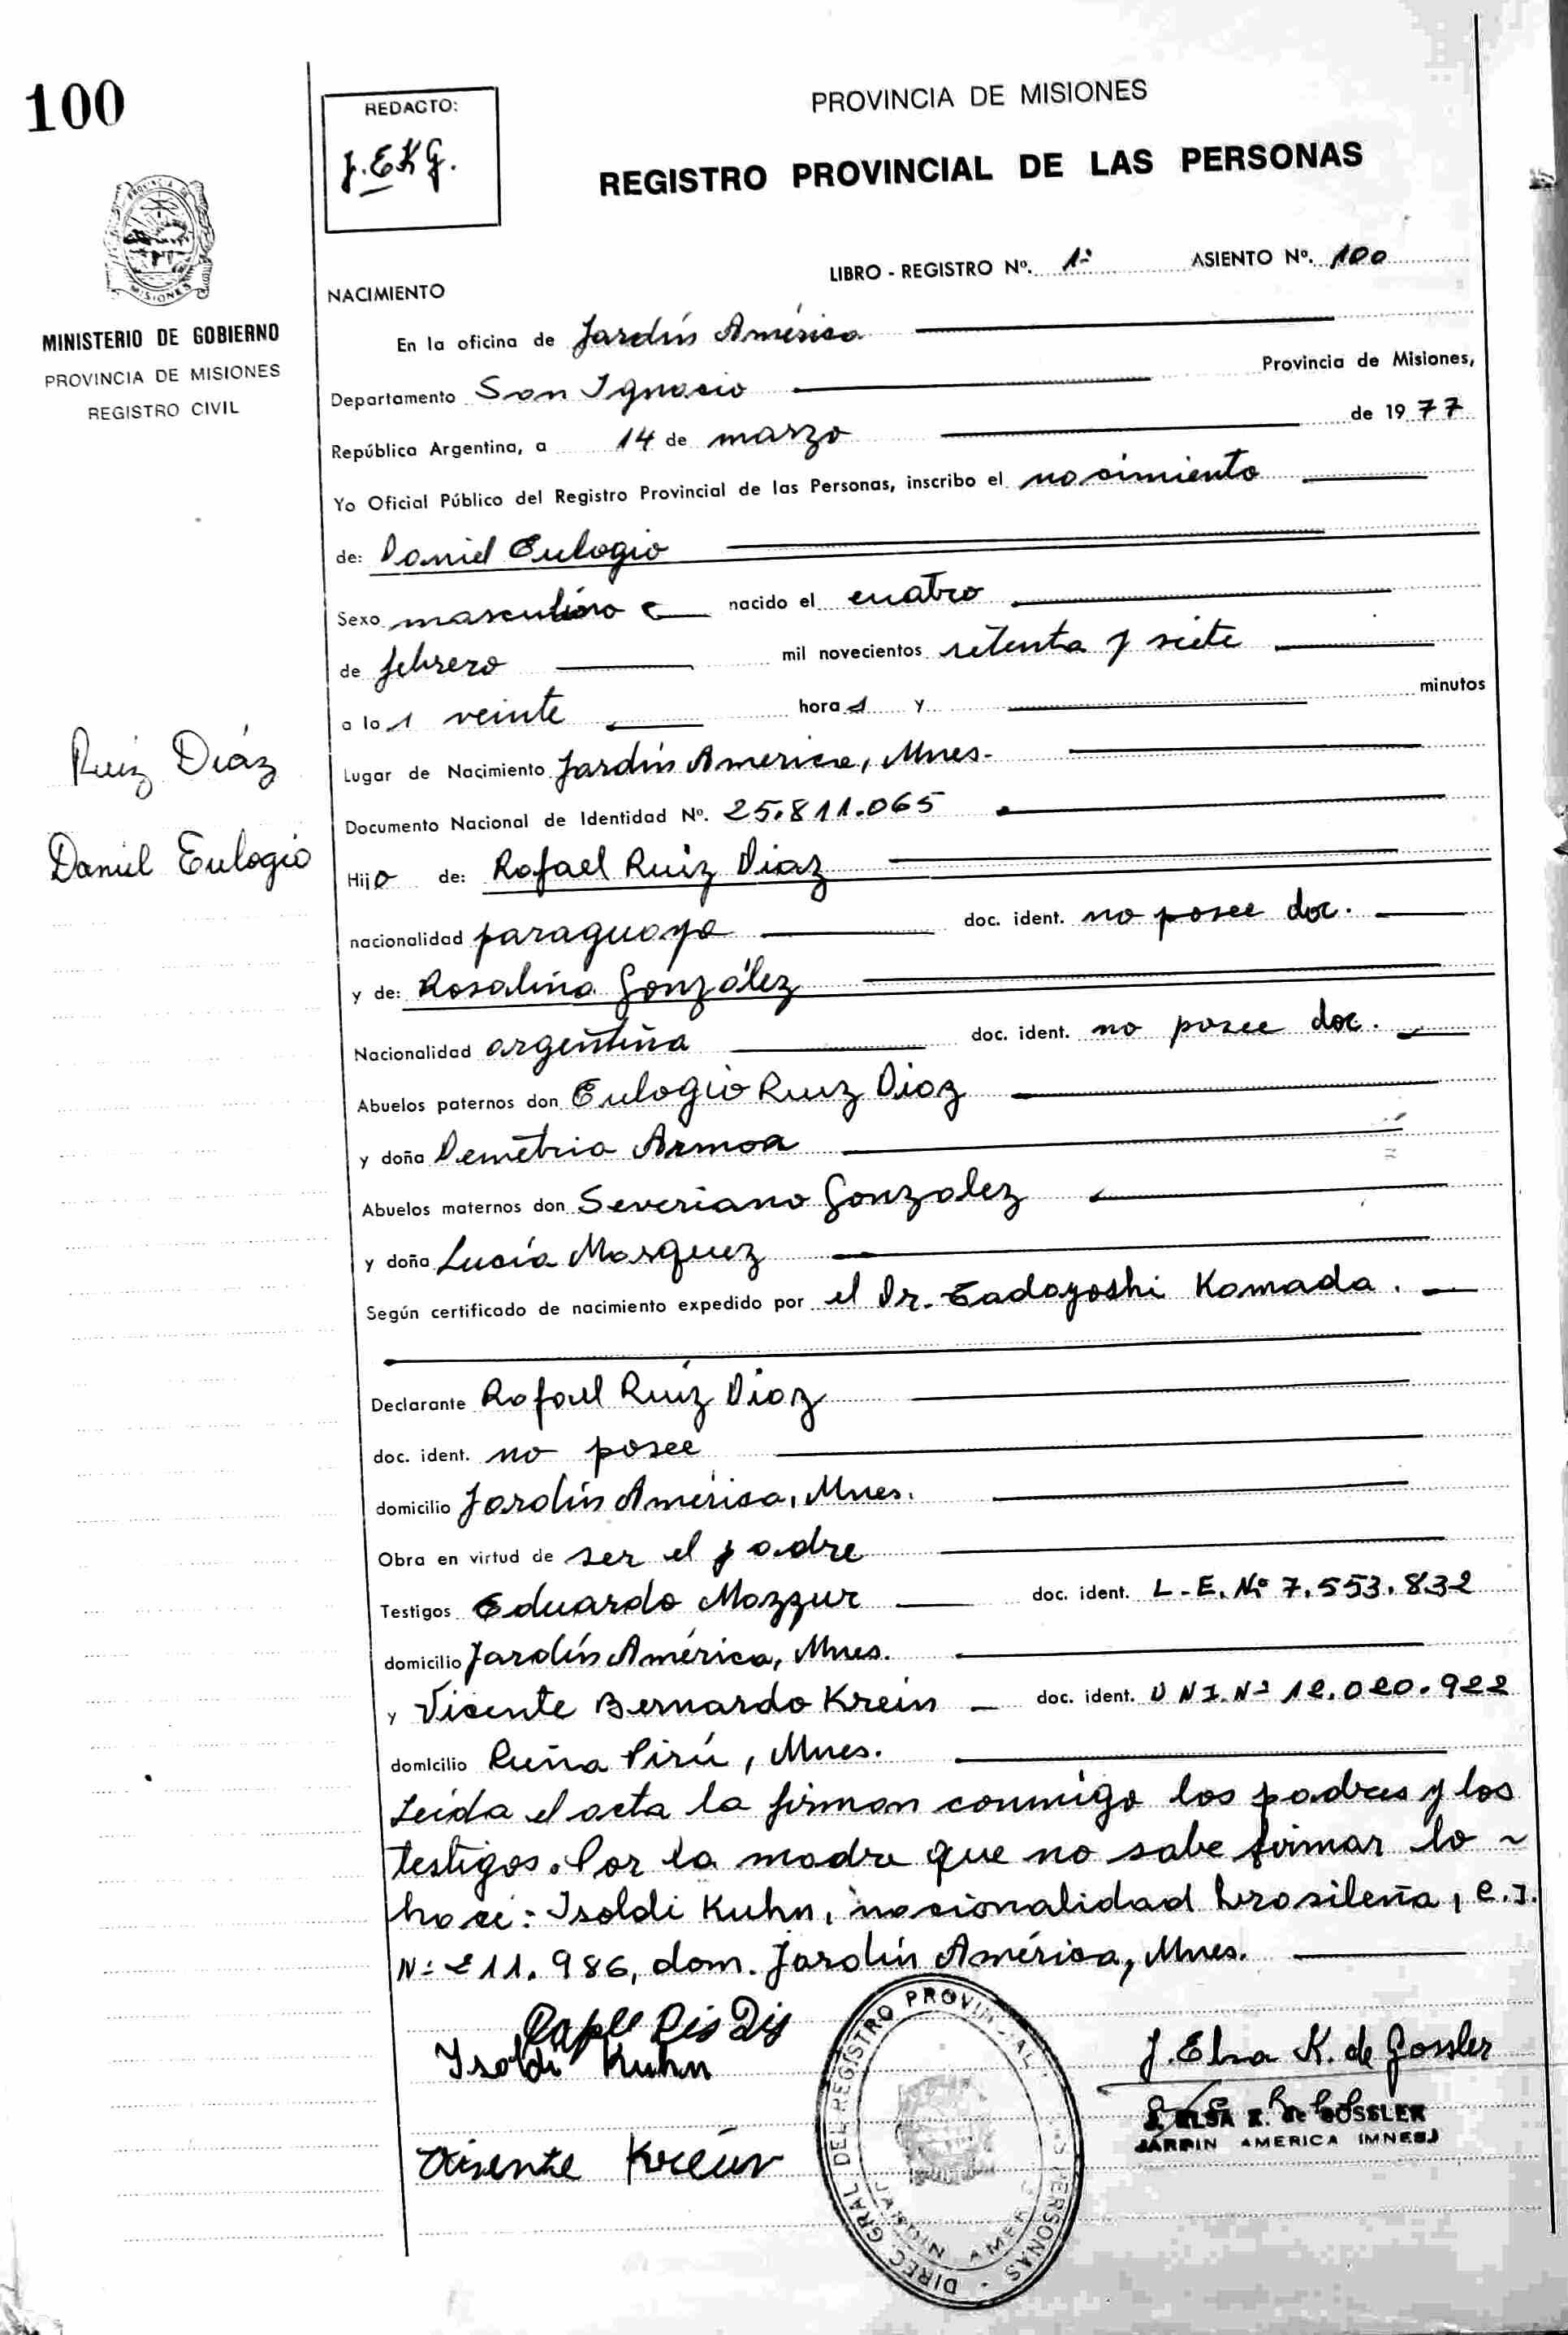 100
REDACTO:
J.EKG.
PROVINCIA DE MISIONES
REGISTRO PROVINCIAL DE LAS PERSONAS
MISIONES
MINISTERIO DE GOBIERNO
PROVINCIA DE MISIONES
REGISTRO CIVIL
LIBRO - REGISTRO Nº. 1º ASIENTO Nº. 100
NACIMIENTO
En la oficina de Jardín América
Departamento San Ignacio Provincia de Misiones,
República Argentina, a 14 de marzo de 1977
Yo Oficial Público del Registro Provincial de las Personas, inscribo el nacimiento
de: Daniel Eulogio
Sexo masculino nacido el cuatro
de febrero mil novecientos setenta y siete
a las veinte horas y minutos
Ruiz Diáz
Daniel Eulogio
Lugar de Nacimiento Jardín America, Mnes.
Documento Nacional de Identidad Nº. 25.811.065
Hijo de: Rafael Ruiz Diaz
nacionalidad paraguaya doc. ident. no posee doc.
y de: Rosalina González
Nacionalidad argentina doc. ident. no posee doc.
Abuelos paternos don Eulogio Ruiz Diaz
y doña Demetria Armoa
Abuelos maternos don Severiano Gonzalez
y doña Lucía Marquez
Según certificado de nacimiento expedido por el Dr. Tadayoshi Kamada.
Declarante Rafael Ruiz Diaz
doc. ident. no posee
domicilio Jardín América, Mnes.
Obra en virtud de ser el padre
Testigos Eduardo Mazzur doc. ident. L.E. Nº 7.553.832
domicilio Jardín América, Mnes.
y Vicente Bernardo Krein doc. ident. DNI. Nº 12.020.922
domicilio Ruina Pirú, Mnes.
Leída el acta la firman conmigo los padres y los
testigos. Por la madre que no sabe firmar lo
hace: Isoldi Kuhn, nacionalidad brasileña, C.I.
Nº 211.986, dom. Jardín América, Mnes.
Isoldi Kuhn
J. Elsa K. de Gossler
J. ELSA K. de GOSSLER
JARDIN AMERICA (MNES)
Visente Krein
DIREC. GRAL DEL REGISTRO PROVINCIAL DE LAS PERSONAS
JARDIN AMERICA